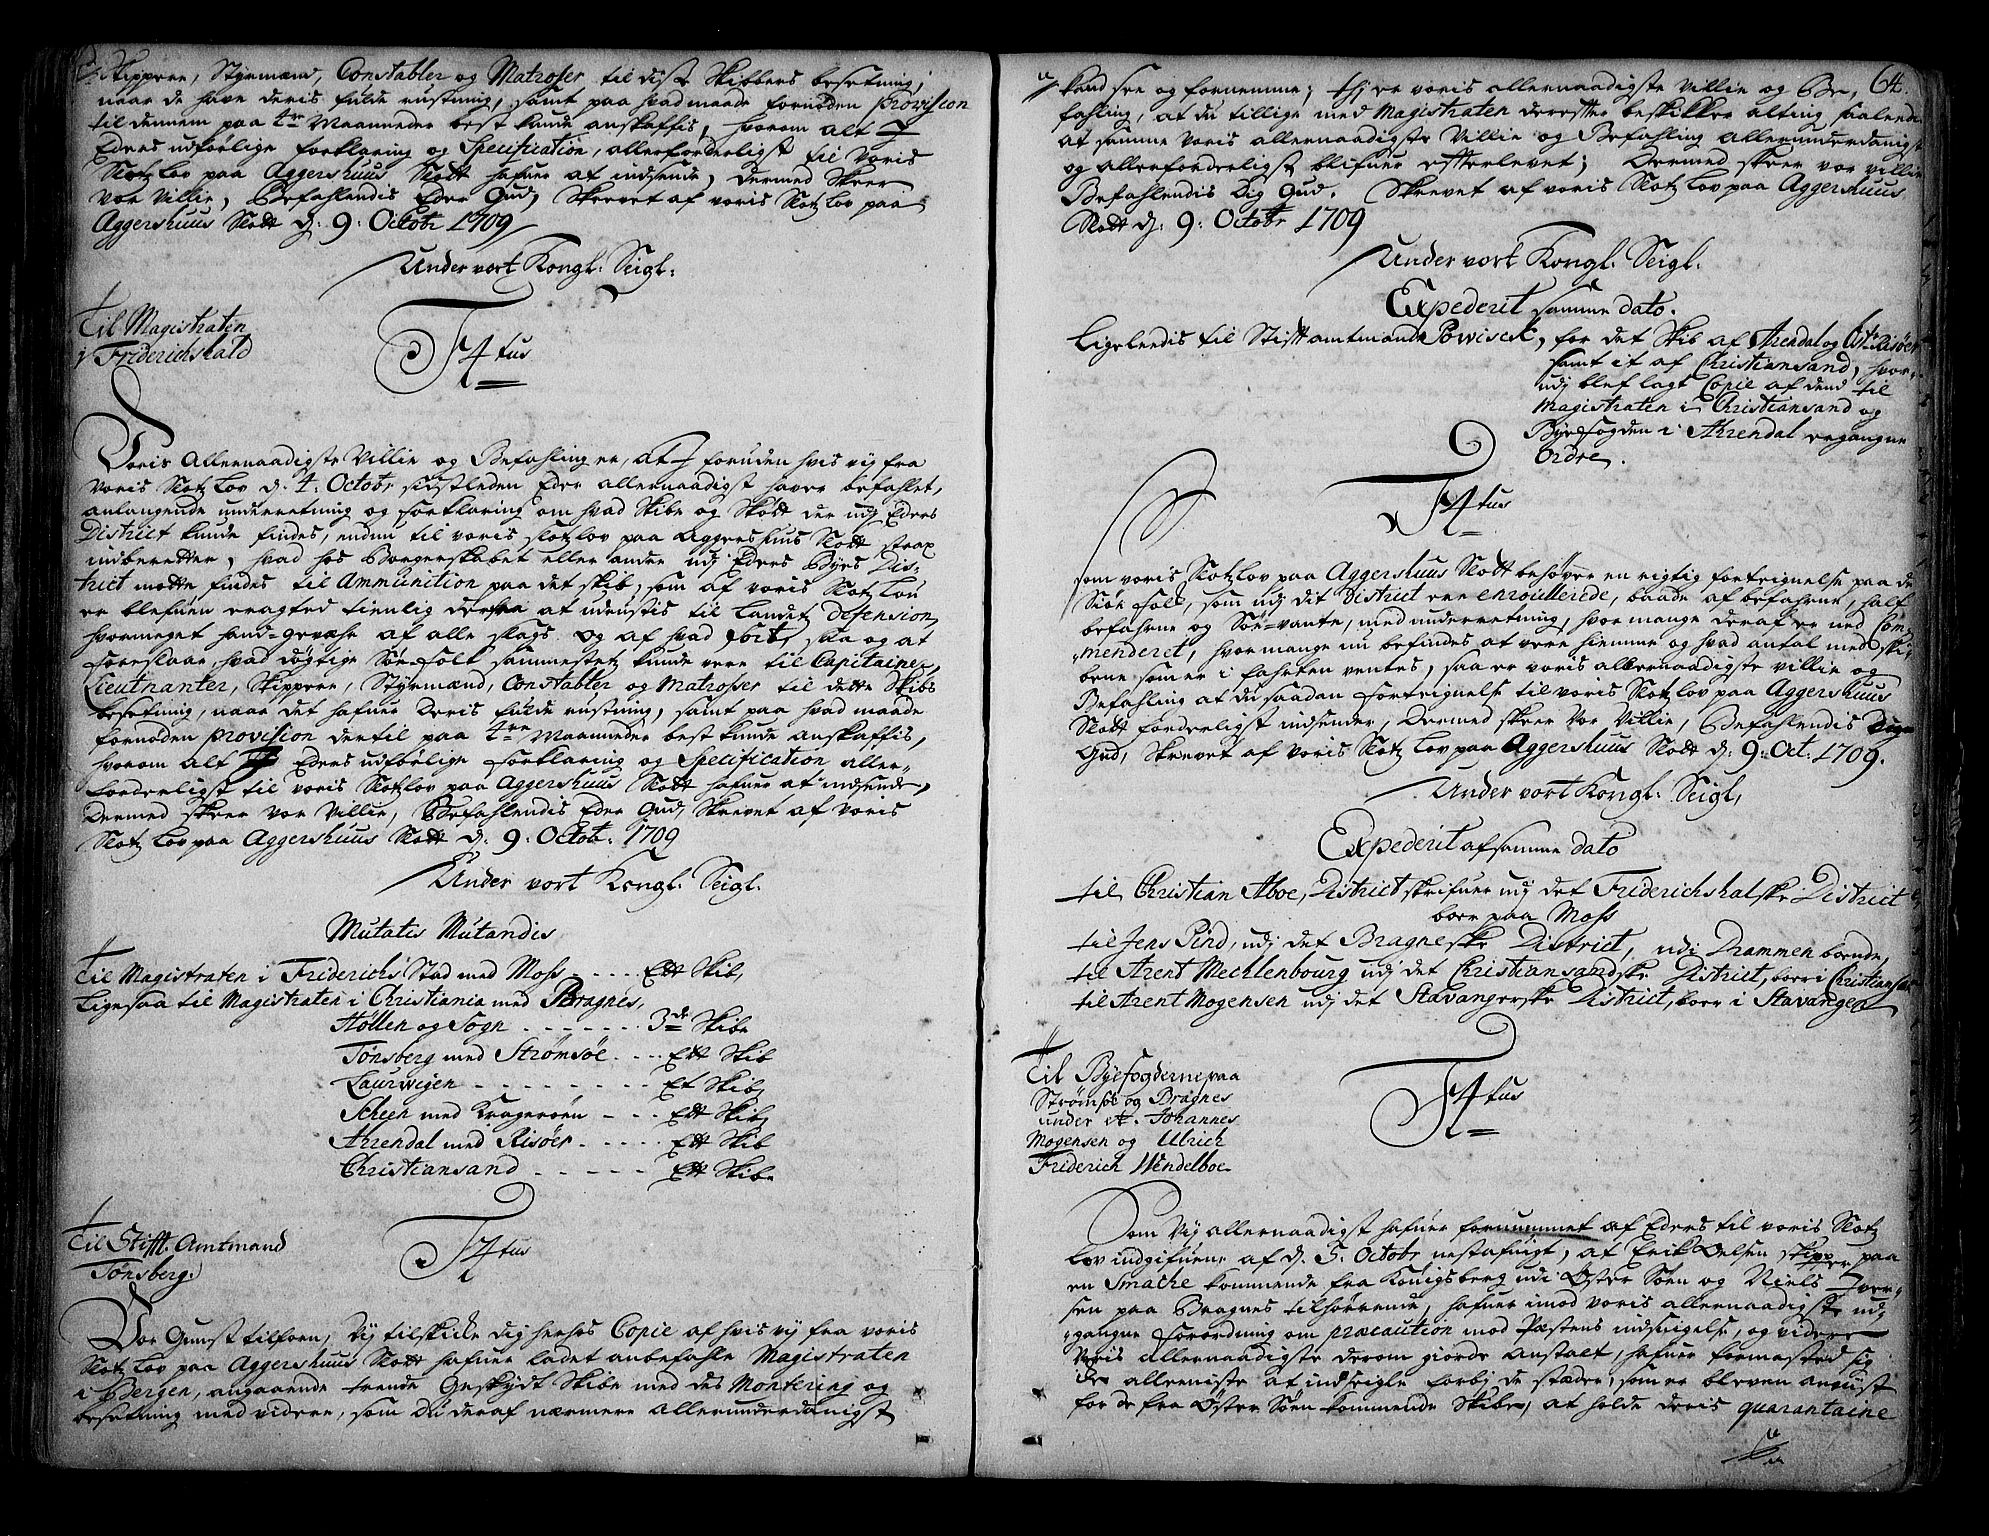 Skippere, Styrmænd, Constabler og Matroser til disse Skibbers besetning,
naar de have deris fulde rustning, samt paa hvad maade fornøden provision
til dennem paa 4re Maaneder best kunde anskaffis, hvorom alt I
Eders udførlige forklaring og Specification, allerforderligst til voris
Slotz Lov paa Aggershuus Slott hafuer at indsende, dermed skeer
vor villie, Befahlendis Eder Gud, Skrevet af voris Slotz Lov paa
Aggershuus Slott d: 9: Octobr 1709
Under vort Kongl: Seigl:
Til Magistraten
i Friderichshald
F4tus
Voris Allernaadigste Villie og Befahling er, at I foruden hvis vij fra
voris Slotz Lov d. 4: Octobr sidstleden Eder allernaadigst haver befahlet,
anlangende underretning og forklaring om hvad Skibe og Skøtt der udj Eders
District kunde findes, enden til voris slotz lov paa Aggershuus Slott strax
indberetter, hvad hos Borgerskabet eller andre udj Eders Byes Dis-
trict motte findes til Ammunition paa det skib, som af voris Slotz Lou
er blefuen eragted tienlig derfra at udrustis til Landetz Defension,
hvormeget hand-gevæhr af alle slags og af hvad sort, saa og at
foreslaar, hvad døgtige Søe-folk sammestetz kunde vere til Capitainer,
Lieutnanter, Skippere, Styrmænd, Constabler og Matroser til dette Skibs
besetning, naar det hafuer Deris fulde rustning, samt paa hvad maade
fornøden provision dertil paa 4re Maaneder best kunde anskaffis,
hvorom alt I Eders udførlige forklaring og Specification aller-
forderligst til voris Slotzlov paa Aggershuus Slott hafuer at indsende,
Dermed skeer vor villie, Befahlendis Eder Gud, Skrevet af voris
Slotz Lov paa Aggershuus Slott d: 9: Octobr. 1709
Under vort Kongl: Seigl:
Mutatis Mutandis
Til Magistraten i Friderichs Stad med Moss - - - - Ett Skib,
Ligesaa til Magistraten i Christiania med Bragnes,
Høllen og Sogn - - - - - - - 3de Skibe
Tønsberg med Strømsøe - - - - Ett Skib
Laurwigen - - - - - - - - Et Skib
Scheen med Kragerøen - - - - Ett Skib
Ahrendal med Risøer - - - - - Ett Skib
Christiansand - - - - - - Ett Skibe
Til Stifft Amtmand
Tønsberg
F4tus
Vor Gunst tilforn, Vij tilskicke dig herhos Copie af hvis vij fra voris
Slotz Lov paa Aggershuus Slott hafuer ladet anbefahle Magistraten
i Bergen, angaaende trende Geskydt Skibe med des Montering og
besetning med videre, som Du deraf nærmere allerunderdanigst
64.
kand see og fornemme; thj er voris allernaadigste Villie og Be-
fahling, at du tillige med Magistraten derefter beskikker alting, saalende
at samme voris allernaadigste Villie og Befahling allerunderdanigst
og allerforderligst blifuer efterlevet; Dermed skeer vor villie
Befahlendis Dig Gud. Skrevet af voris Slotz Lov paa Aggershuus
Slott d: 9: Octobr 1709
Under vort Kongl: Seigl:
Expederit samme dato.
Ligeledis til Stiftamtmand Powisch, for det Skib af Ahrendal og Østr Risøer
samt it af Christiansand, hvor-
udj blef lagt Copie af dend til
Magistraten i Christiansand og
Byefogden i Ahrendal ergangne
Ordre.
F4tus
Som voris Slotz Lov paa Aggershuus Slott behøver en rigtig forteignelse paa de
Siøe folk, som udj dit District ere enroullerede, baade af befahrne, half
befahrne og Søe-vante, med underretning, hvor mange deraf er ned Com-
menderet, hvormange nu befindes at vere hiemme og hvad antal med ski-
bene som er i fahrten ventes, saa er voris allernaadigste villie og
Befahling at du saadan forteignelse til voris Slotz Lov paa Aggershuus
Slott forderligst indsender, Dermed skeer vor villie, Befahlendis Dig
Gud, Skrevet af voris Slotz Lov paa Aggershuus Slott d: 9: Oct: 1709.
Under vort Kongl: Seigl,
Expederit af samme dato
til Christian Aboe, District skrifuer udj det Friderichshalske District
boer paa Moss
til Jens Pind, udj det Bragneske District, udi Drammen boende,
til Arent Mecklenbourg udj det Christiansandske District, boer i Christiansand
til Arent Mogensen udj det Stavangerske District, boer i Stavangen
Til Byefogderne paa
Strømsøe og Bragnes
under et. Johannes
Mogensen og Ulrich
Friderich Wendelboe
F4tus
Som Vij allernaadigst hafuer fornummet af Eders til voris Slotz
Lov indgifuene af d. 5. Octobr nestafuigt, at Erik Oelsen skipper paa
en Smache kommende fra Konigsberg udi Øster Søen og Niels Iver-
sen paa Bragnes tilhørrende, hafuer imod voris allernaadigste ud-
gangne forordning om præcaution mod Pæstens indsnigelse, og videre
voris allernaadigste derom giorde Anstalt, hafuer formasted sig
de allerniste at indseigle forbj de stæder, som er bleven anviist
for de fra Øster Søen kommende Skibe, at holde deris quarantaine